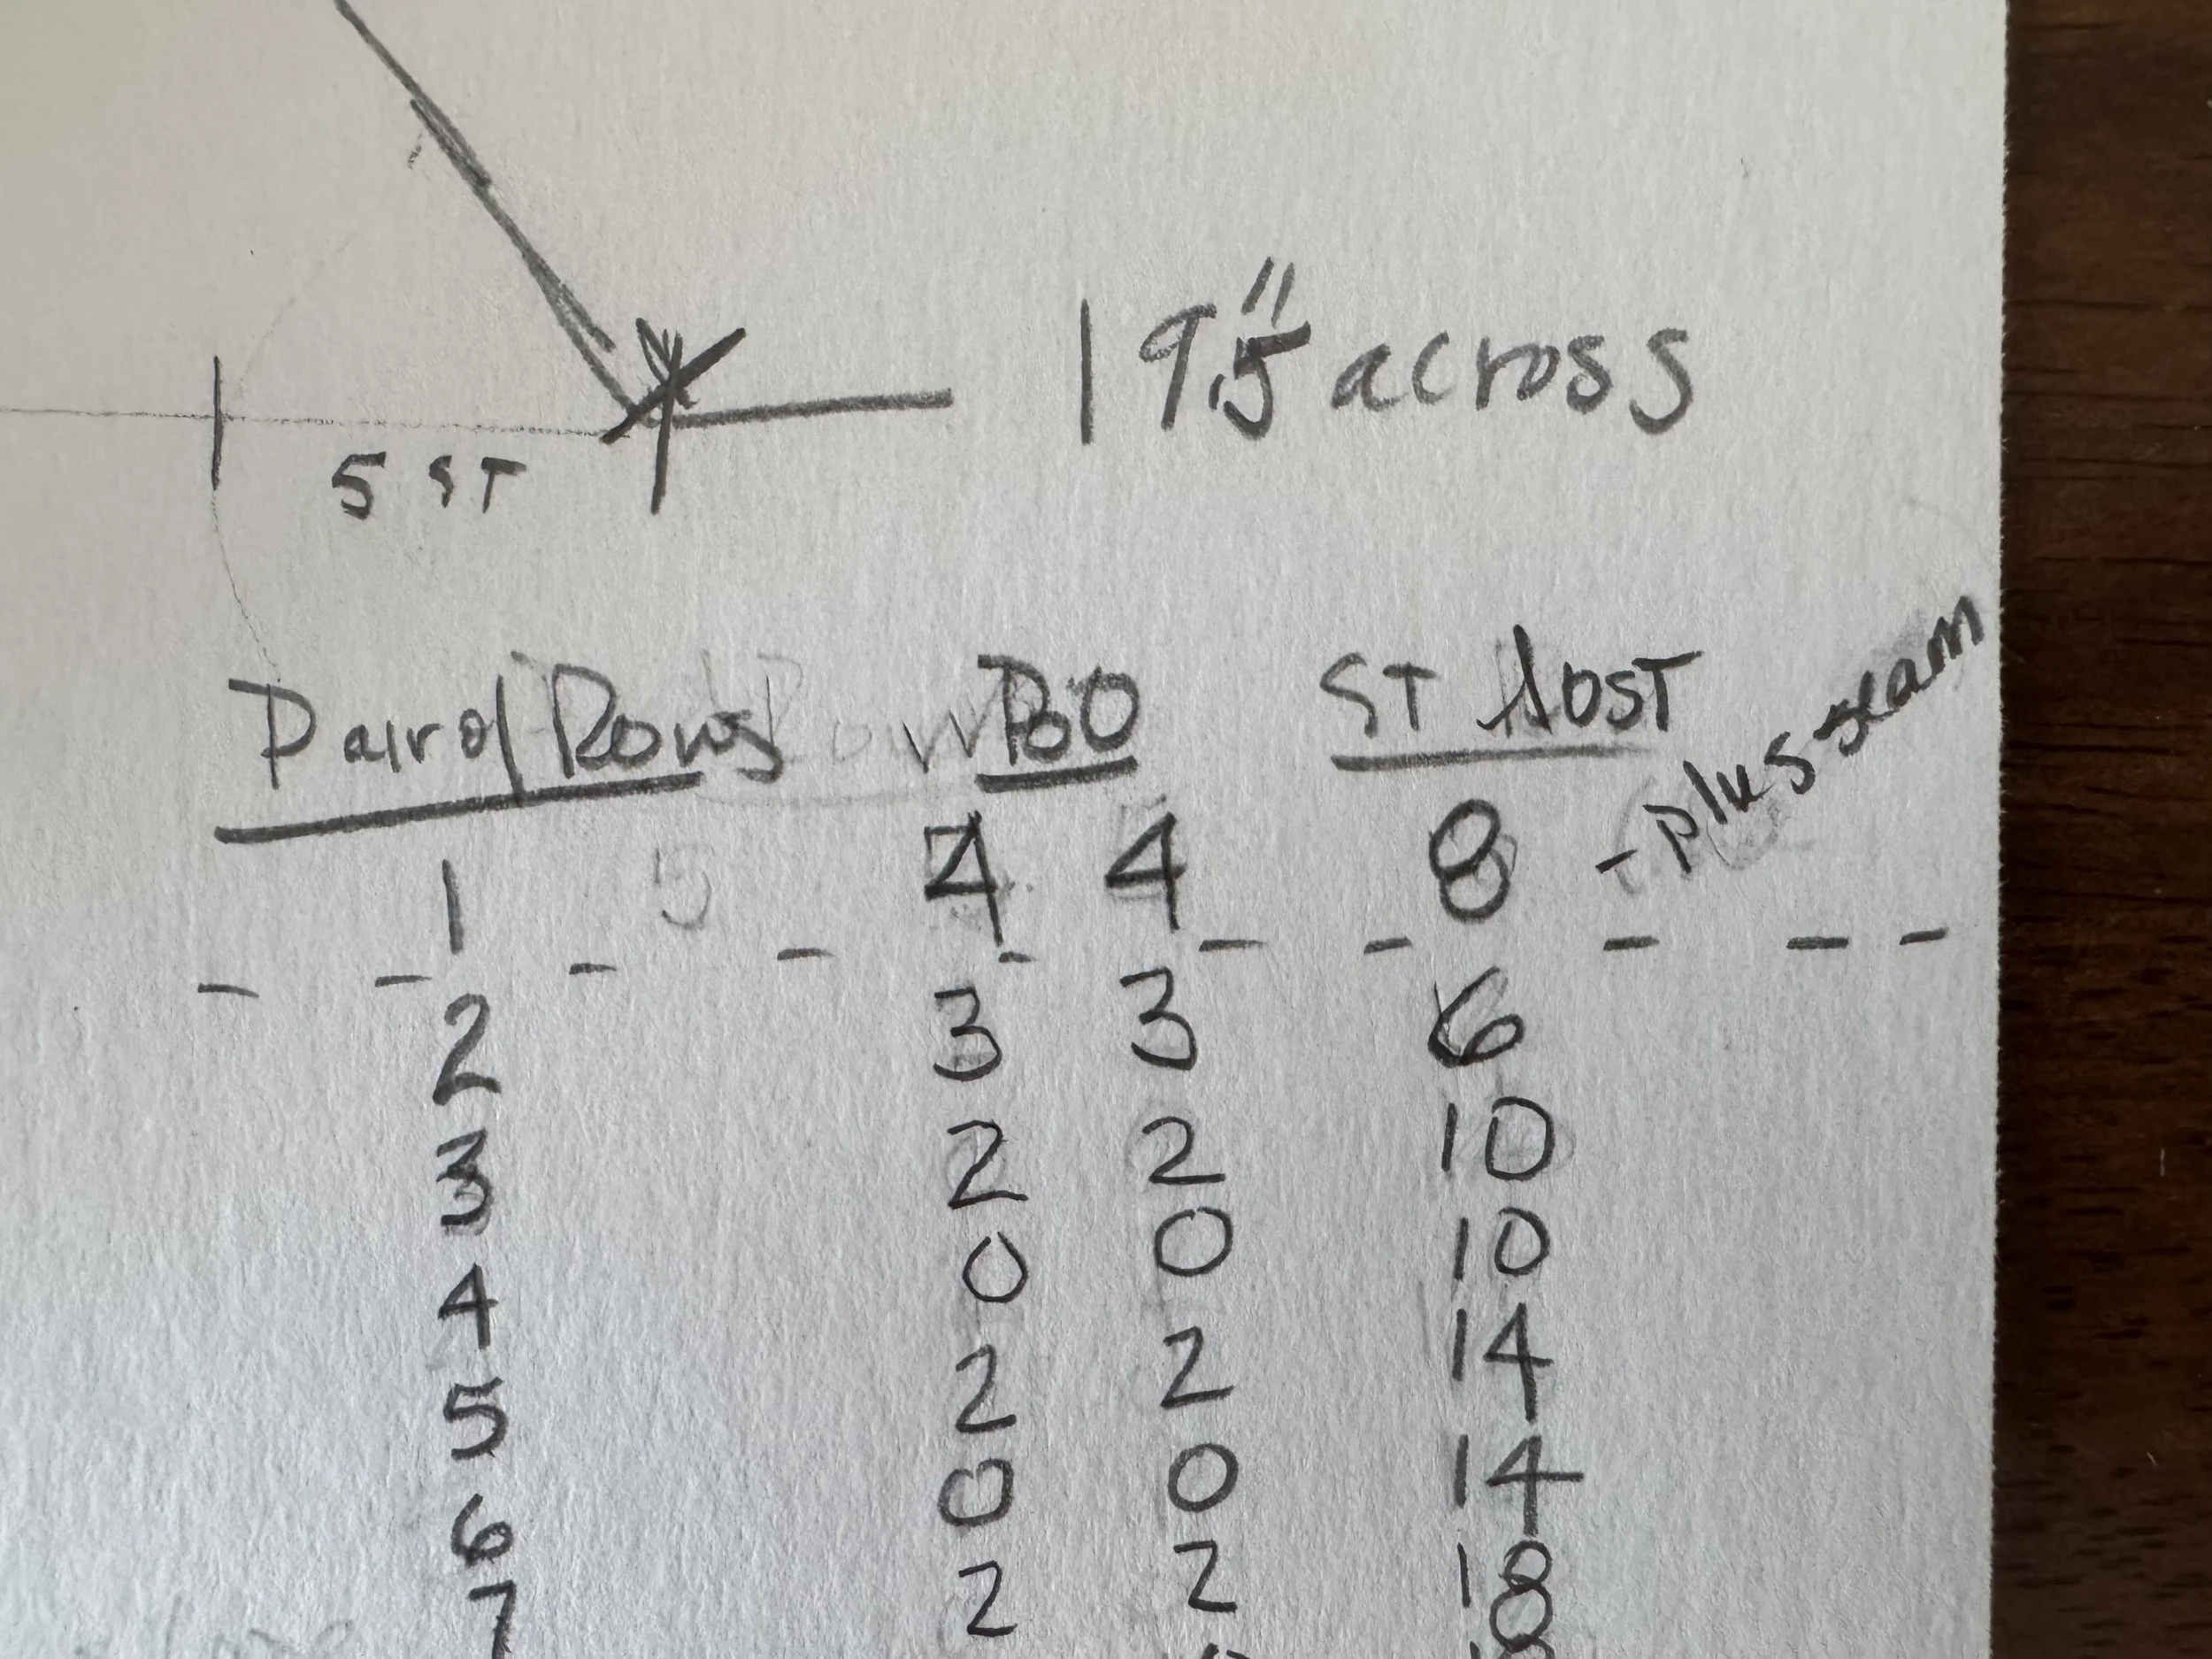 19.5" across
5 ST
Pair of Rows BO ST Lost
1 4 4 8 - plus seam
2 3 3 6
3 2 2 10
4 0 0 10
5 2 2 14
6 0 0 14
7 2 2 18